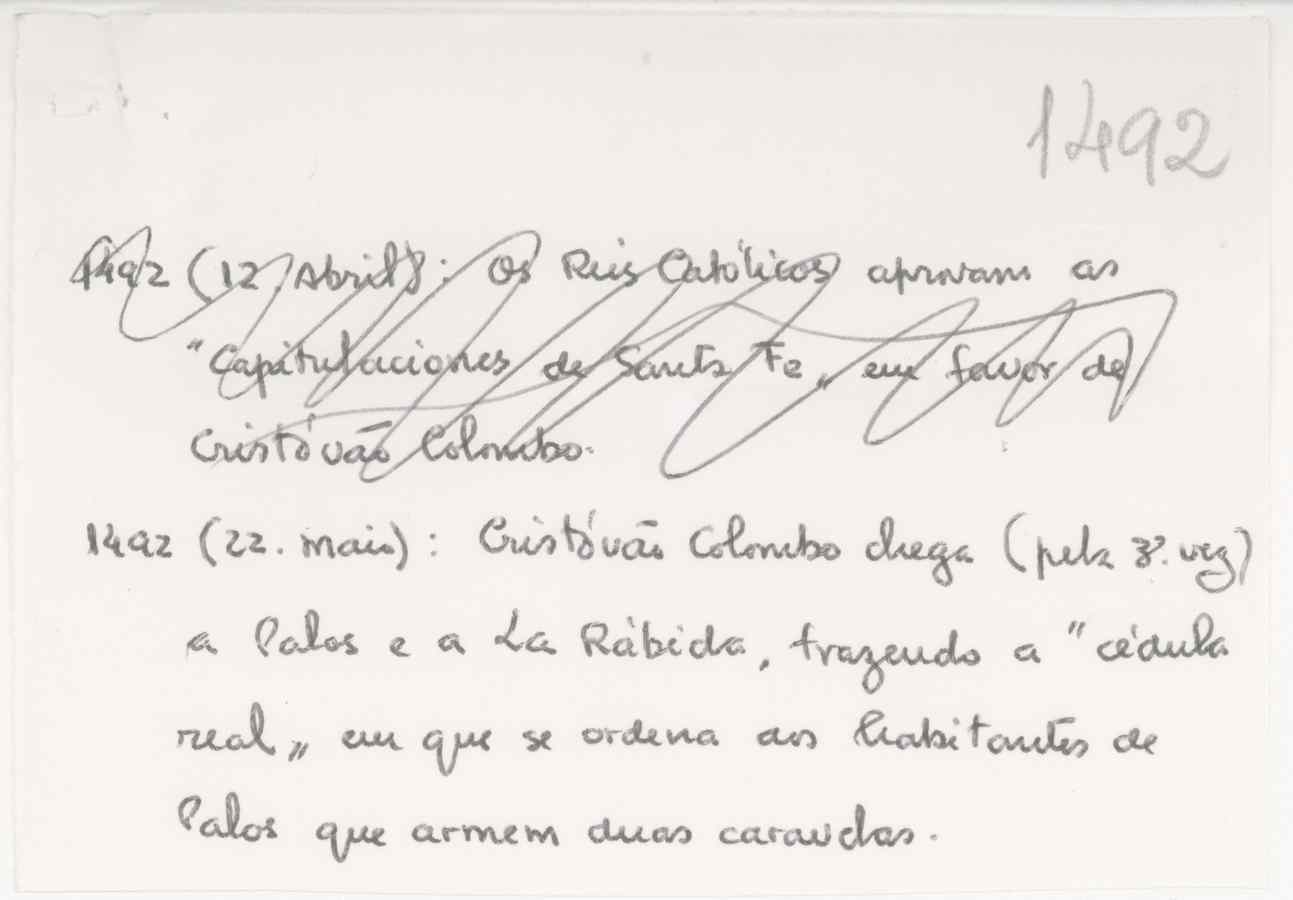 1492
1492 (12 Abril): Os Reis Católicos aprovam as
"Capitulaciones de Santa Fe„ em favor de
Cristóvão Colombo.
1492 (22. maio): Cristóvão Colombo chega (pela 3ª. vez)
a Palos e a La Rábida, trazendo a "cédula
real„ em que se ordena aos habitantes de
Palos que armem duas caravelas.